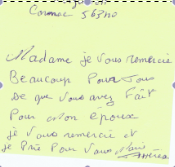 Carnac 56340
Madame je vous remercie
Beaucoup Pour Tous
De que vous avez Fait
Pour Mon epoux
je vous remercie et
je Prie Pour vous